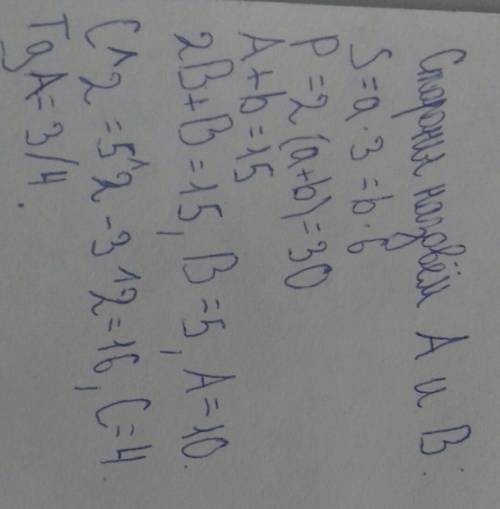 Стороны назовём А и В.
S = a · 3 = b · 6
P = 2 (a+b) = 30
A + b = 15
2B + B = 15, B = 5, A = 10.
C^2 = 5^2 - 3^2 = 16, C = 4.
Tg A = 3/4.